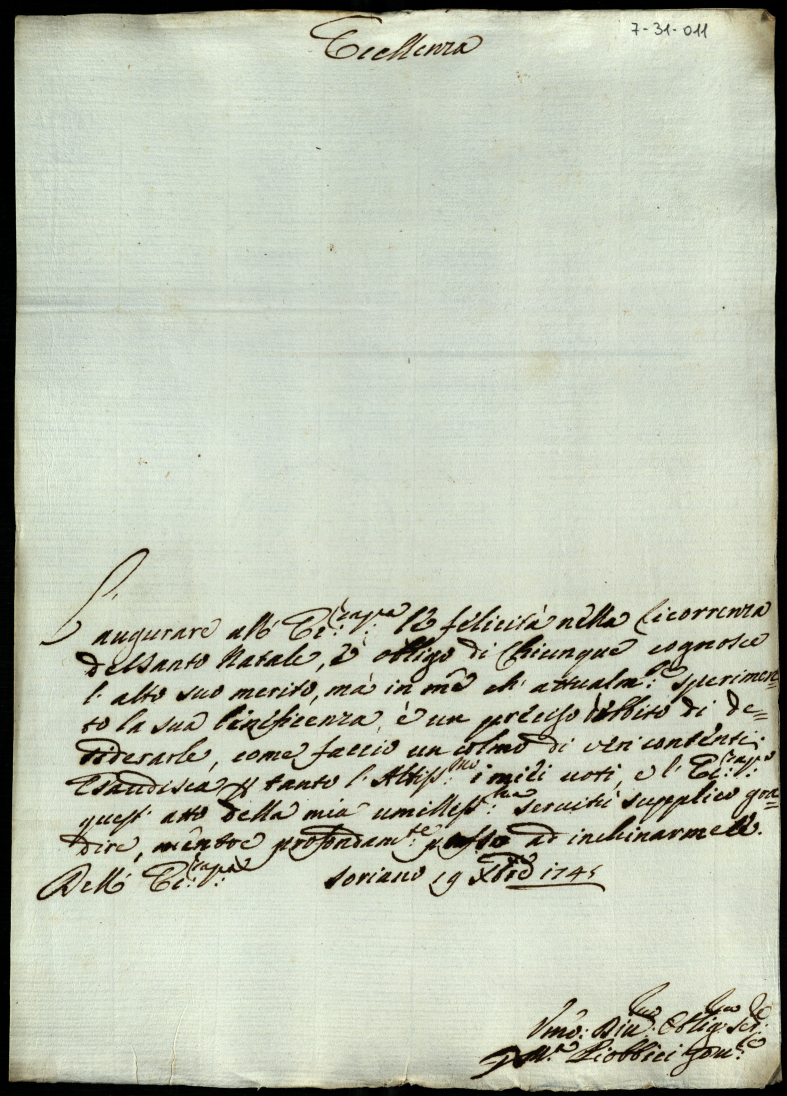 7-31-011
Eccellenza
L'
augurare all' Ecc:za v:ra le felicità nella ricorrenza
del Santo Natale, è obligo di chiunque cognosce
l'alto suo merito, mà in mè ch' attualm:te sperimen=
to la sua beneficenza, è un preciso debbito di de=
siderarle, come faccio un colmo di veri contenti;
Esaudisca tanto l'Altiss:mo i miei voti, e l'
quest' atto della mia umilless:ma servitù supplico gra=
dire, mentre profondam:te passo ad inchinarmele.
Dell' Soriano 19 Xbre 1745
Vmo: Div:mo Oblig:mo Ser:e
Gov:re